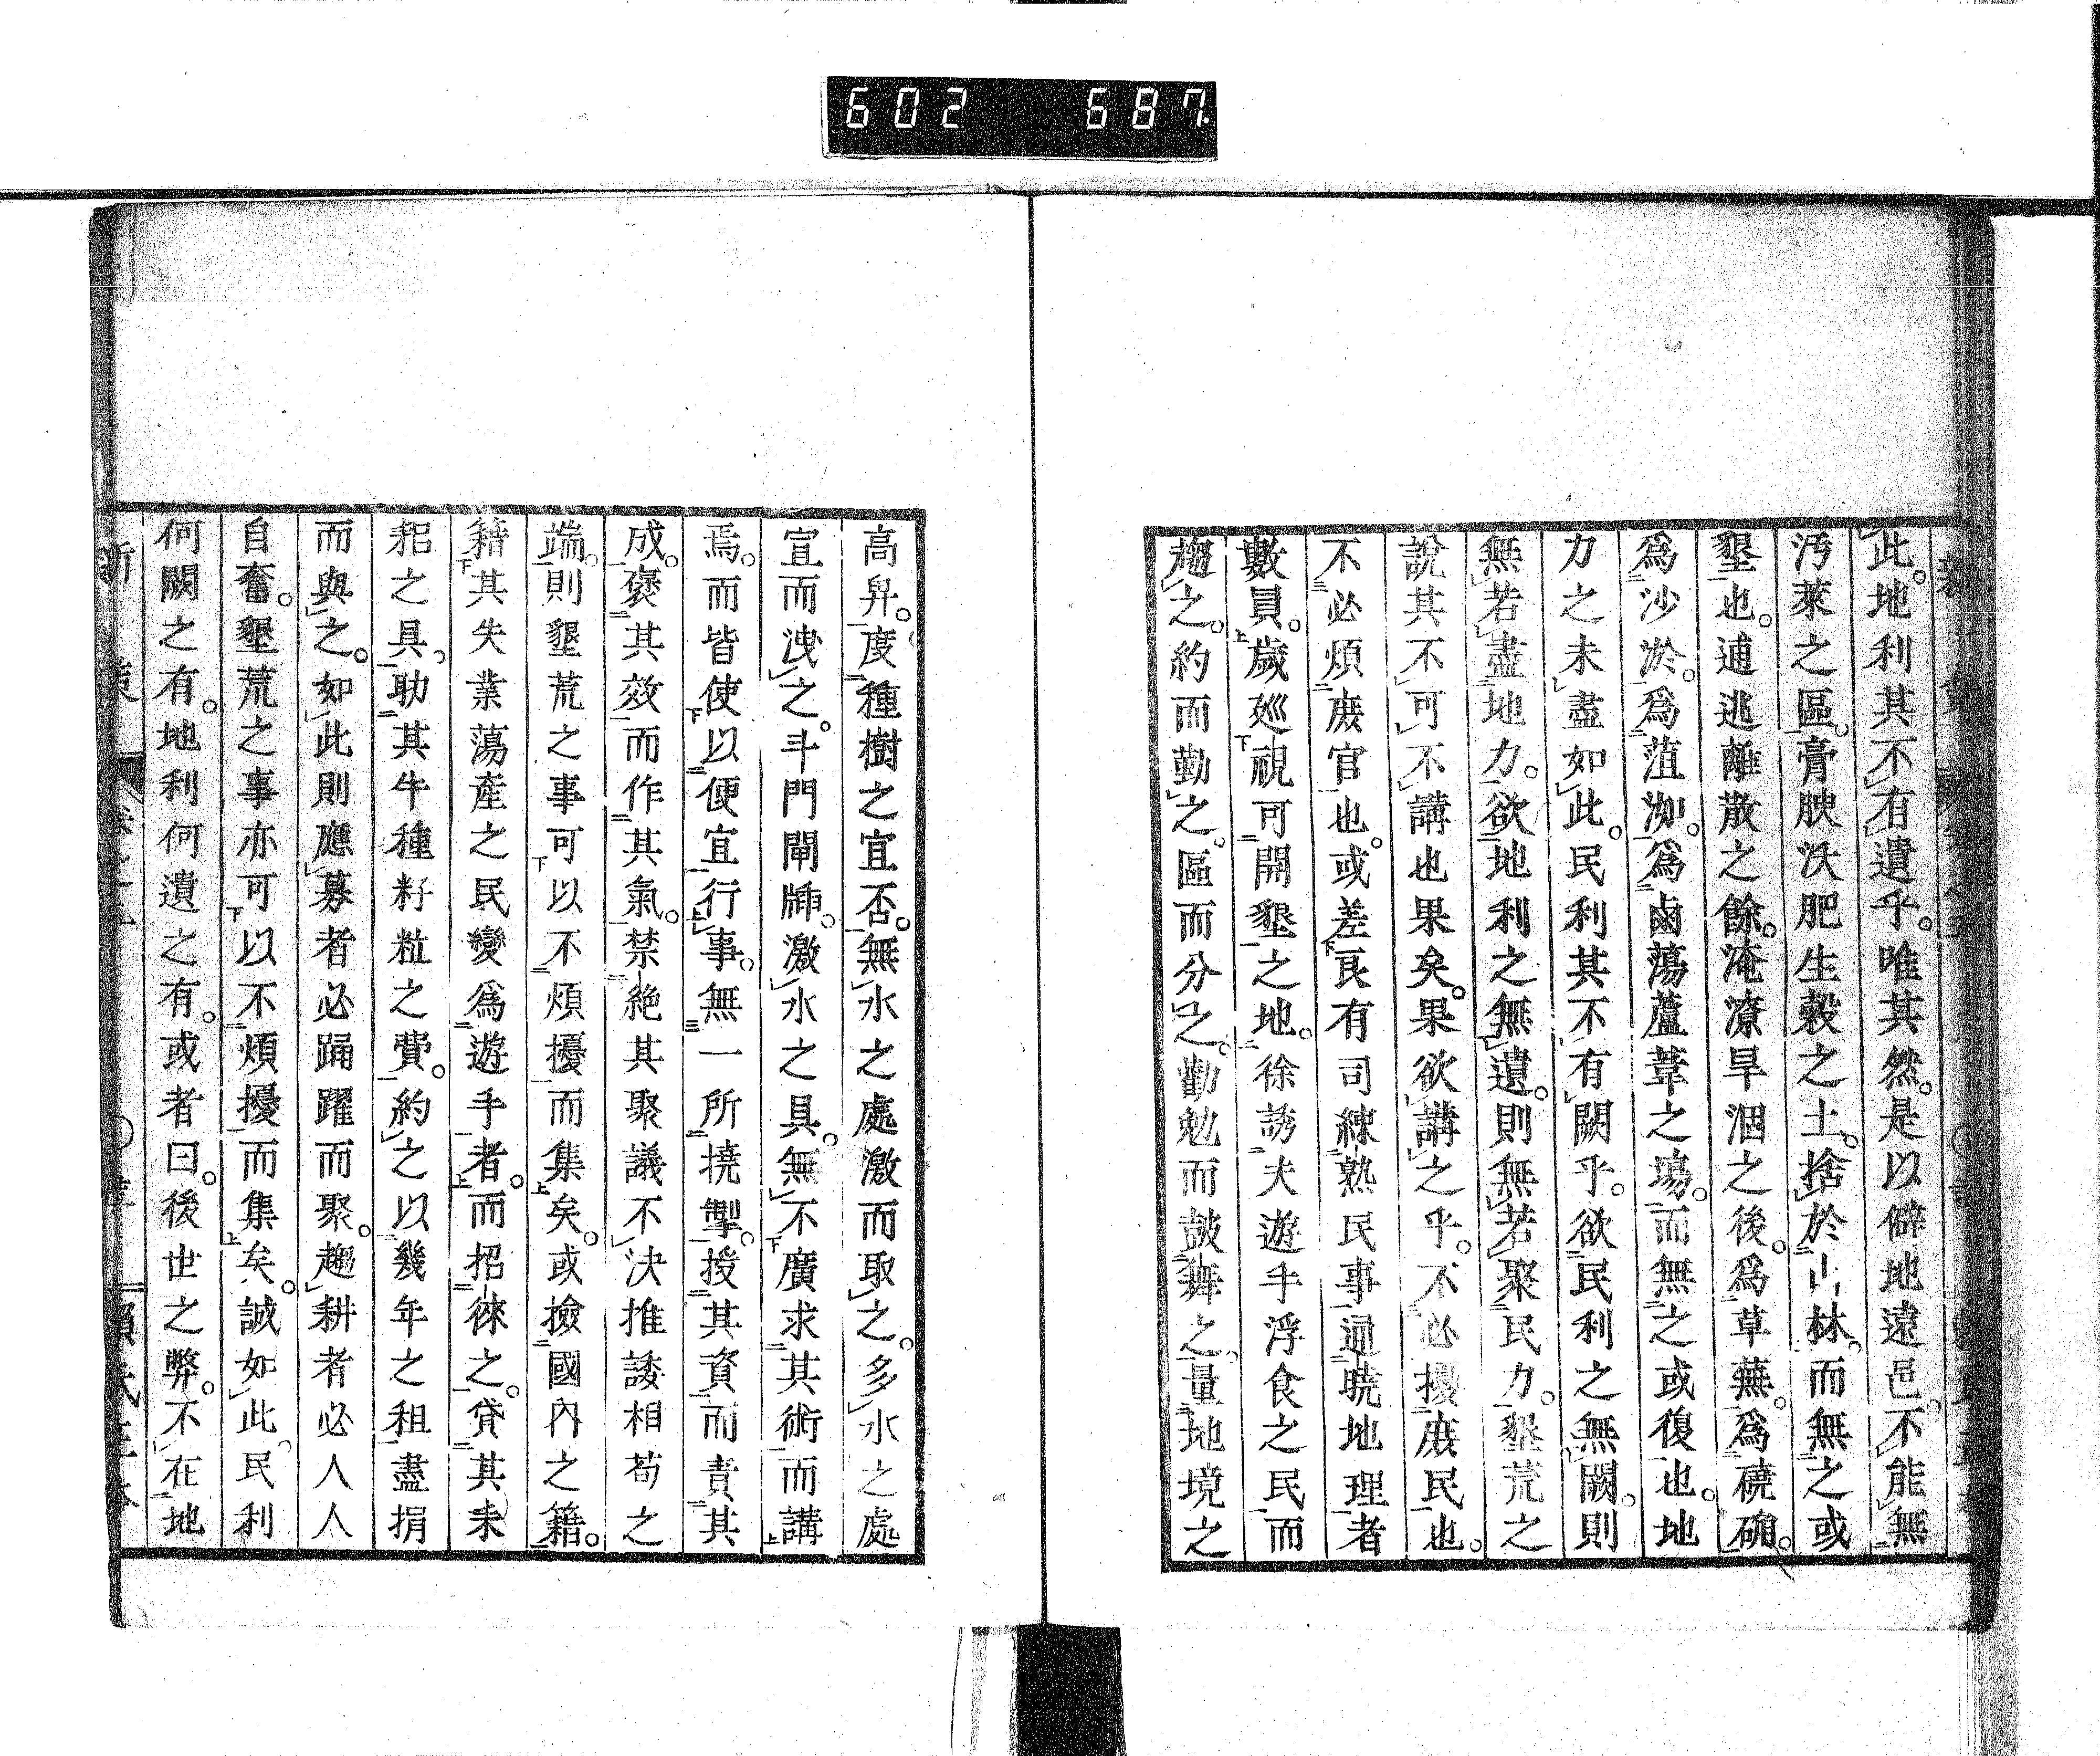 602 687.
此。地利其不有遺乎。唯其然。是以僻地遠邑。不能無
汚萊之區。膏腴沃肥生穀之土。捨於山林。而無之或
墾也。逋逃離散之餘。淹潦旱涸之後。爲草蕪。爲磽确。
爲沙淤。爲菹洳。爲鹵蕩蘆葦之場。而無之或復也。地
力之未盡如此。民利其不有闕乎。欲民利之無闕。則
無若盡地力。欲地利之無遺。則無若聚民力。墾荒之
說其不可不講也果矣。果欲講之乎。不必擾庶民也。
不必煩庶官也。或差良有司練熟民事通曉地理者
數員。歲巡視可開墾之地。徐誘夫遊手浮食之民而
趨之。約而勤之。區而分之。勸勉而鼓舞之。量地境之
高昇。度種樹之宜否。無水之處激而取之。多水之處
宣而洩之。斗門閘牐。激水之具。無不廣求其術而講
焉。而皆使以便宜行事。無一所撓掣。授其資而責其
成。褒其效而作其氣。禁絕其聚議不決推諉相苟之
端。則墾荒之事可以不煩擾而集矣。或撿國內之籍。
籍其失業蕩產之民變爲遊手者。而招徠之。貸其耒
耜之具。助其牛種籽粒之費。約之以幾年之租盡捐
而與之。如此則應募者必踊躍而聚。趨耕者必人人
自奮。墾荒之事亦可以不煩擾而集矣。誠如此。民利
何闕之有。地利何遺之有。或者曰。後世之弊。不在地